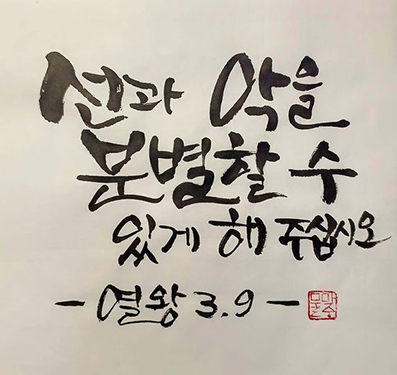 선과 악을
분별할 수
있게 해 주십시오
- 열왕 3.9 -